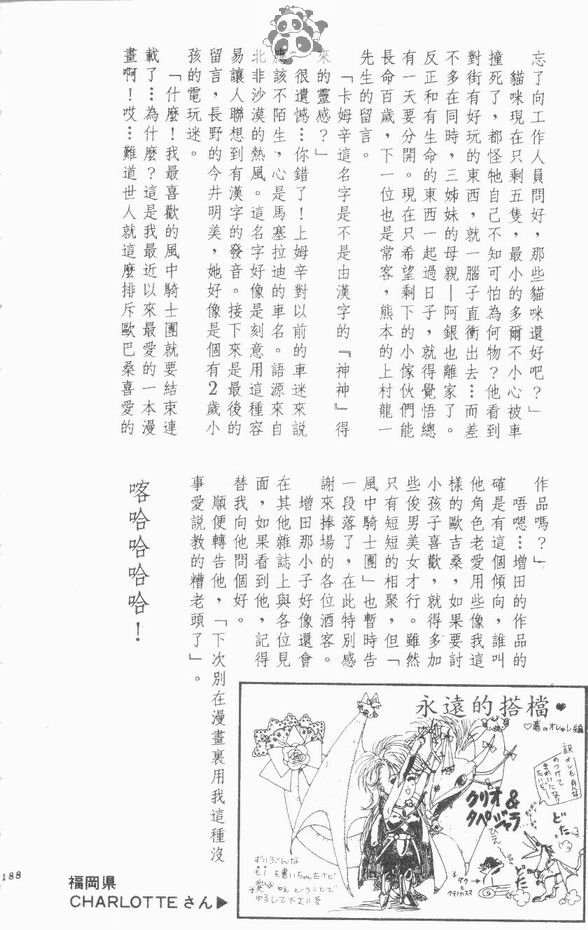 忘了向工作人員問好，那些貓咪還好吧？」
貓咪現在只剩五隻，最小的多爾不小心被車
撞死了，都怪牠自己不知可怕為何物？他看到
對街有好玩的東西，就一腦子直衝出去…而差
不多在同時，三姊妹的母親—阿銀也離家了。
反正和有生命的東西一起過日子，就得覺悟總
有一天要分開。現在只希望剩下的小傢伙們能
長命百歲，下一位也是常客，熊本的上村龍一
先生的留言。
「卡姆辛這名字是不是由漢字的『神神』得
來的靈感？」
很遺憾…你錯了！上姆辛對以前的車迷來說
應該不陌生，心是馬塞拉迪的車名。語源來自
北非沙漠的熱風。這名字好像是刻意用這種容
易讓人聯想到有漢字的發音。接下來是最後的
留言，長野的今井明美，她好像是個有2歲小
孩的電玩迷。
「什麼！我最喜歡的風中騎士團就要結束連
載了…為什麼？這是我最近以來最愛的一本漫
畫啊！哎…難道世人就這麼排斥歐巴桑喜愛的
作品嗎？」
唔嗯…增田的作品的
確是有這個傾向，誰叫
他角色老愛用些像我這
樣的歐吉桑，如果要討
小孩子喜歡，就得多加
些俊男美女才行。雖然
只有短短的相聚，但「
風中騎士團」也暫時告
一段落了，在此特別感
謝來捧場的各位酒客。
增田那小子好像還會
在其他雜誌上與各位見
面，如果看到他，記得
替我向他問個好。
順便轉告他，「下次別在漫畫裏用我這種沒
事愛說教的糟老頭了」。
喀哈哈哈哈！
永遠的搭檔
クリオ&
タペジャラ
どた
福岡県
CHARLOTTEさん▶
188